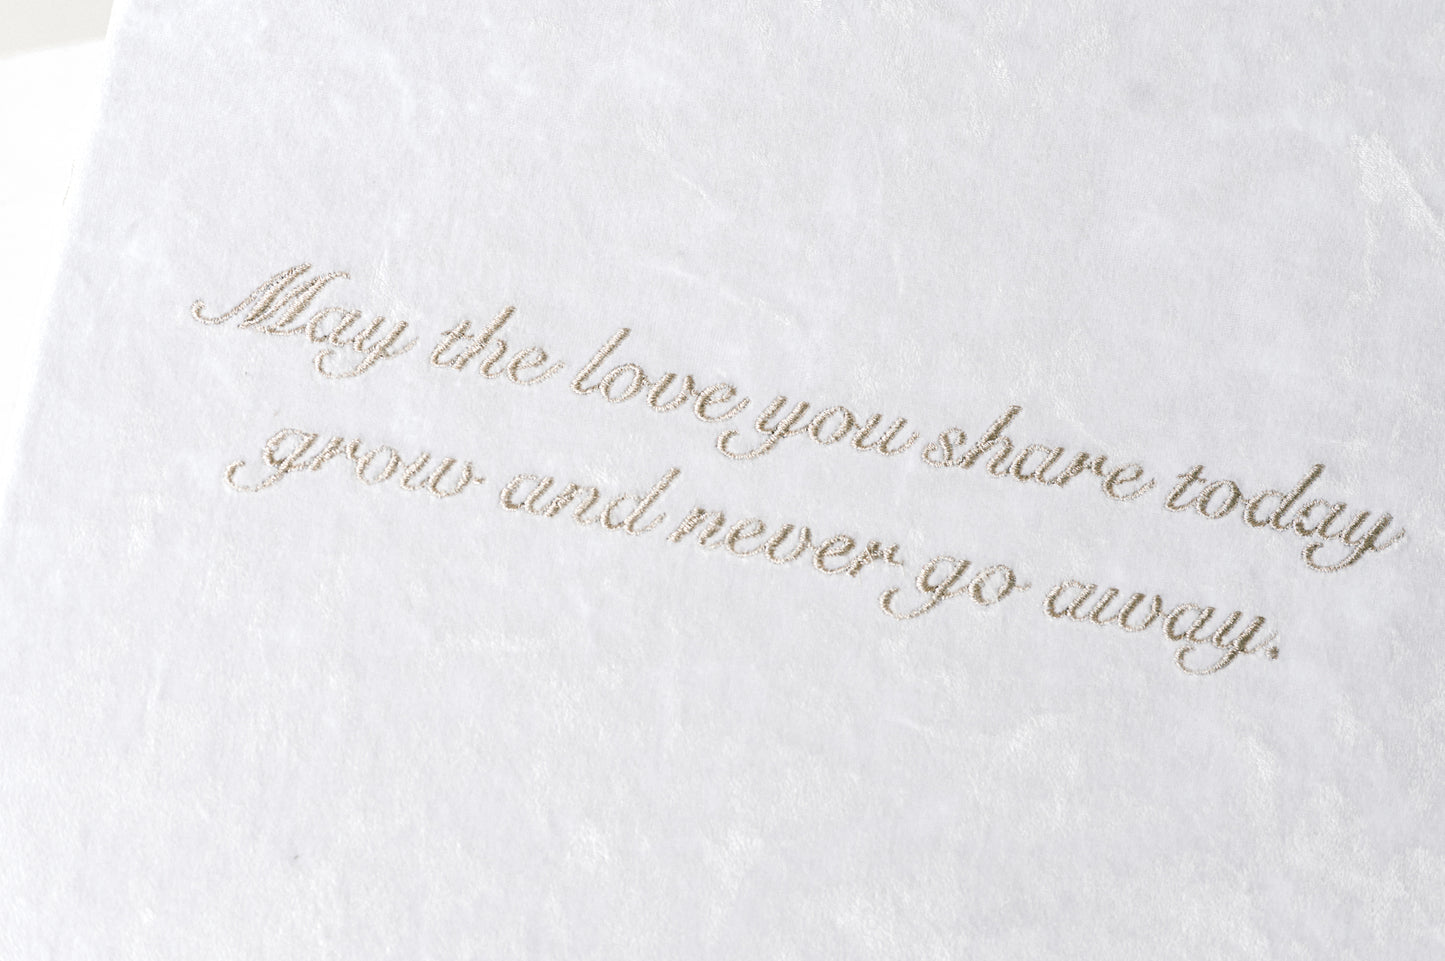 May the love you share today
grow and never go away.